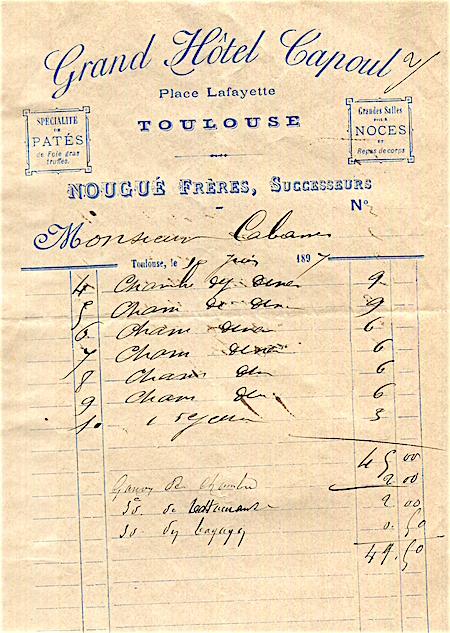 Grand Hôtel Capoul
2/
Place Lafayette
TOULOUSE
SPÉCIALITÉ
DE
PATÉS
de Foie gras
truffés.
Grandes Salles
POUR
NOCES
ET
Repas de corps
NOUGUÉ FRÈRES, SUCCESSEURS
N°
Monsieur Cabanes
Toulouse, le 10 Juin 1897
4 Chambre dej diner 9
5 Cham de din 9
6 Cham diner 6
7 Cham diner 6
8 Cham din 6
9 Cham din 6
10 1 dejeuner 3
45 00
Garçon de chambre 2 00
So. de restaurant 2 00
So des bagages 0.50
49.50